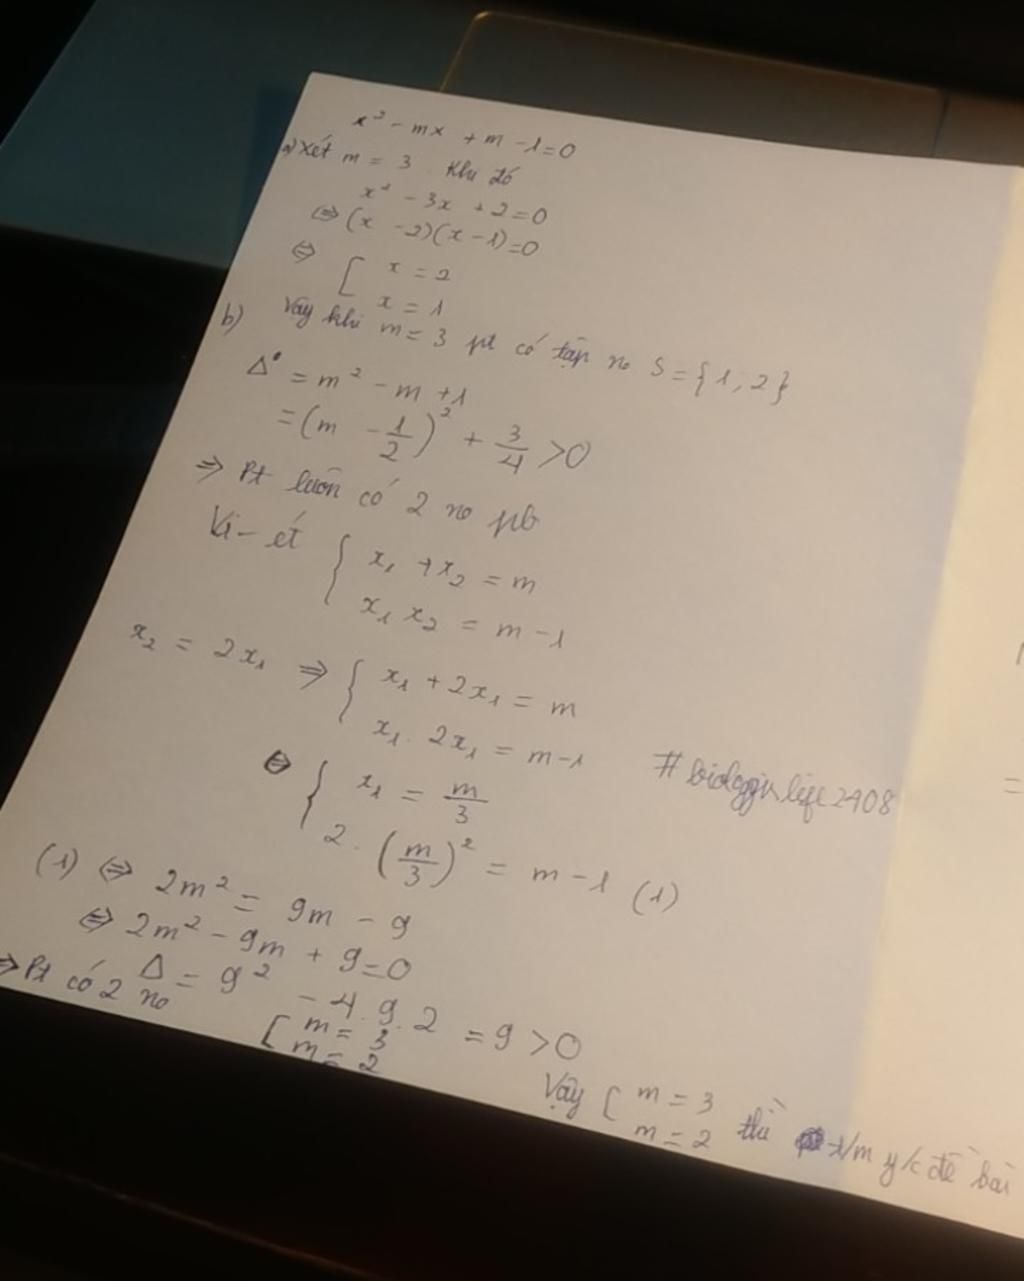 x² - mx + m - 1 = 0
a) Xét m = 3. Khi đó
x² - 3x + 2 = 0
⇔ (x - 2)(x - 1) = 0
⇔ [ x = 2
x = 1
Vậy khi m = 3 pt có tập no S = {1; 2}
b)
Δ = m² - m + 1
= (m - 1/2)² + 3/4 > 0
⇒ Pt luôn có 2 no pb
Vi-ét { x₁ + x₂ = m
x₁ x₂ = m - 1
x₂ = 2x₁ ⇒ { x₁ + 2x₁ = m
x₁ . 2x₁ = m - 1
⇔ { x₁ = m/3
2 . (m/3)² = m - 1 (1)
(1) ⇔ 2m² = 9m - 9
⇔ 2m² - 9m + 9 = 0
Δ = 9² - 4.9.2 = 9 > 0
⇒ Pt có 2 no [ m = 3
m = 2
Vậy [ m = 3
m = 2 thì t/m y/c đề bài